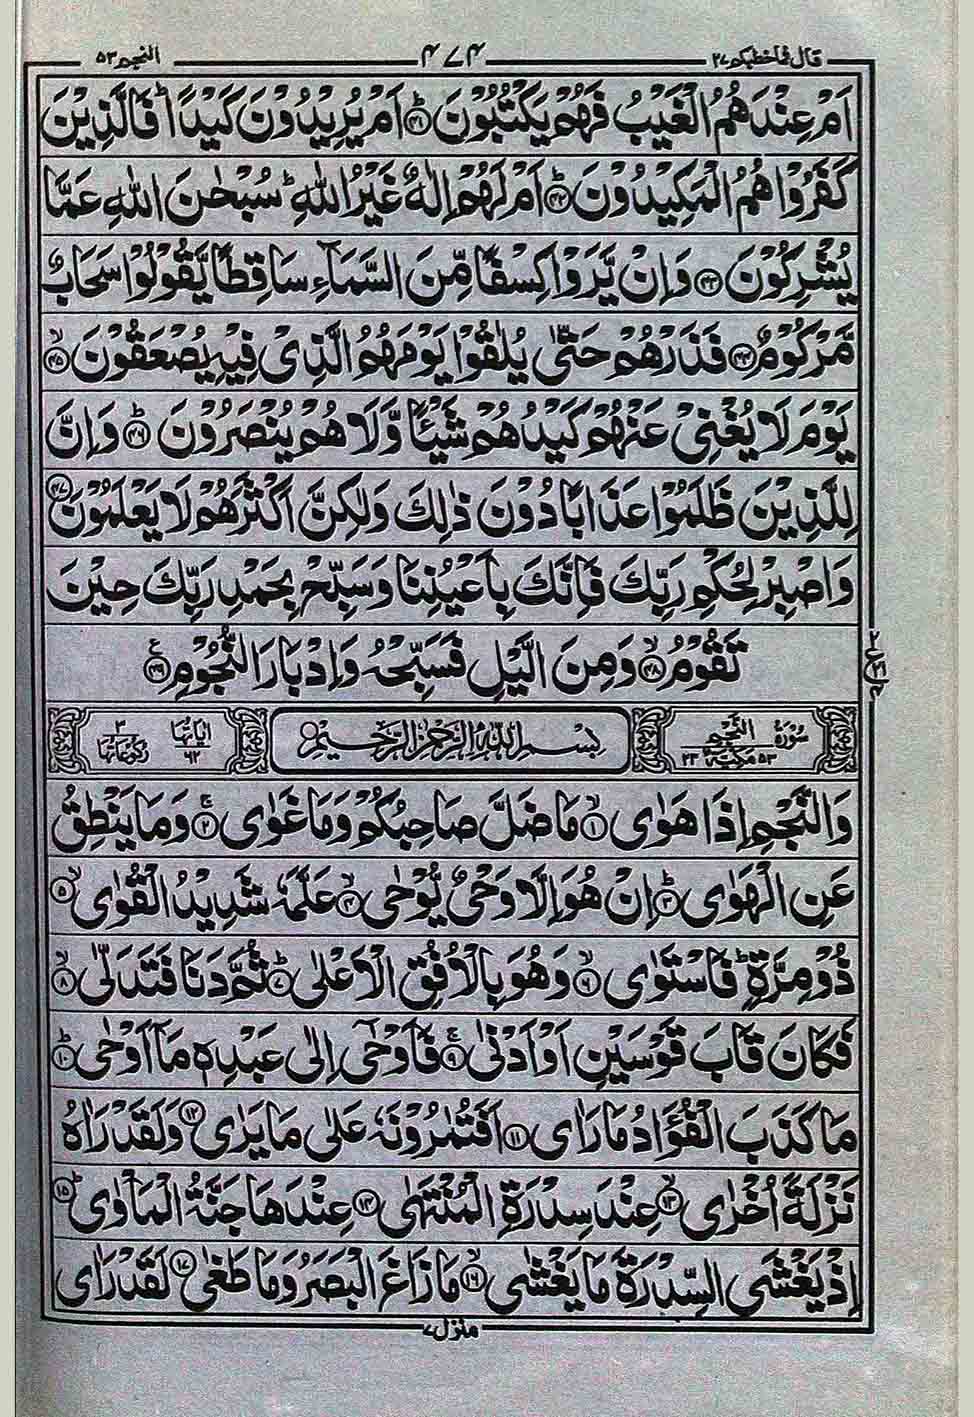 قال فما خطبكم ٢٧ ٤٧٤ النجم ٥٣
اَمْ عِنْدَهُمُ الْغَيْبُ فَهُمْ يَكْتُبُوْنَ ؕ﴿۴۱﴾ اَمْ يُرِيْدُوْنَ كَيْدًا ؕ فَالَّذِيْنَ
كَفَرُوْا هُمُ الْمَكِيْدُوْنَ ؕ﴿۴۲﴾ اَمْ لَهُمْ اِلٰهٌ غَيْرُ اللّٰهِ ؕ سُبْحٰنَ اللّٰهِ عَمَّا
يُشْرِكُوْنَ ﴿۴۳﴾ وَاِنْ يَّرَوْا كِسْفًا مِّنَ السَّمَآءِ سَاقِطًا يَّقُوْلُوْا سَحَابٌ
مَّرْكُوْمٌ ﴿۴۴﴾ فَذَرْهُمْ حَتّٰى يُلٰقُوْا يَوْمَهُمُ الَّذِىْ فِيْهِ يُصْعَقُوْنَ ۙ﴿۴۵﴾
يَوْمَ لَا يُغْنِىْ عَنْهُمْ كَيْدُهُمْ شَيْئًا وَّلَا هُمْ يُنْصَرُوْنَ ؕ﴿۴۶﴾ وَاِنَّ
لِلَّذِيْنَ ظَلَمُوْا عَذَابًا دُوْنَ ذٰلِكَ وَلٰكِنَّ اَكْثَرَهُمْ لَا يَعْلَمُوْنَ ﴿۴۷﴾
وَاصْبِرْ لِحُكْمِ رَبِّكَ فَاِنَّكَ بِاَعْيُنِنَا وَسَبِّحْ بِحَمْدِ رَبِّكَ حِيْنَ
تَقُوْمُ ۙ﴿۴۸﴾ وَمِنَ الَّيْلِ فَسَبِّحْهُ وَاِدْبَارَ النُّجُوْمِ ﴿۴۹﴾
سُوْرَةُ النَّجْمِ ٥٣ مكية ٢٣ بِسْمِ اللّٰهِ الرَّحْمٰنِ الرَّحِيْمِ اٰيَاتُهَا ٦٢ رُكُوْعَاتُهَا ٣
وَالنَّجْمِ اِذَا هَوٰى ۙ﴿۱﴾ مَا ضَلَّ صَاحِبُكُمْ وَمَا غَوٰى ۚ﴿۲﴾ وَمَا يَنْطِقُ
عَنِ الْهَوٰى ؕ﴿۳﴾ اِنْ هُوَ اِلَّا وَحْىٌ يُّوْحٰى ۙ﴿۴﴾ عَلَّمَهٗ شَدِيْدُ الْقُوٰى ۙ﴿۵﴾
ذُوْ مِرَّةٍ ؕ فَاسْتَوٰى ۙ﴿۶﴾ وَهُوَ بِالْاُفُقِ الْاَعْلٰى ؕ﴿۷﴾ ثُمَّ دَنَا فَتَدَلّٰى ۙ﴿۸﴾
فَكَانَ قَابَ قَوْسَيْنِ اَوْ اَدْنٰى ۚ﴿۹﴾ فَاَوْحٰٓى اِلٰى عَبْدِهٖ مَاۤ اَوْحٰى ؕ﴿۱۰﴾
مَا كَذَبَ الْفُؤَادُ مَا رَاٰى ﴿۱۱﴾ اَفَتُمٰرُوْنَهٗ عَلٰى مَا يَرٰى ﴿۱۲﴾ وَلَقَدْ رَاٰهُ
نَزْلَةً اُخْرٰى ۙ﴿۱۳﴾ عِنْدَ سِدْرَةِ الْمُنْتَهٰى ﴿۱۴﴾ عِنْدَهَا جَنَّةُ الْمَاْوٰى ؕ﴿۱۵﴾
اِذْ يَغْشَى السِّدْرَةَ مَا يَغْشٰى ۙ﴿۱۶﴾ مَا زَاغَ الْبَصَرُ وَمَا طَغٰى ﴿۱۷﴾ لَقَدْ رَاٰى
منزل ٧